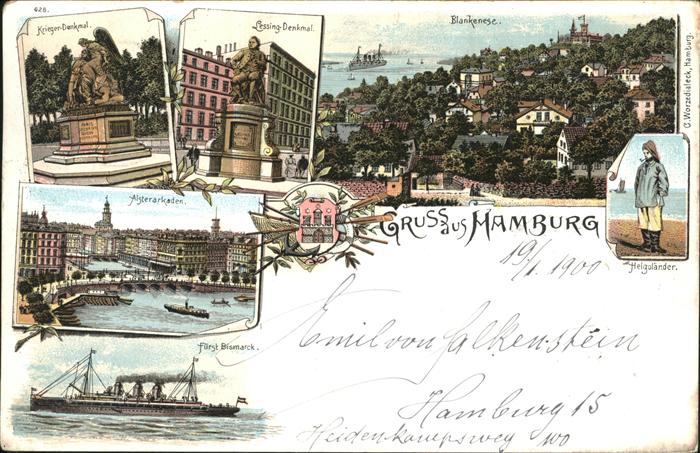 428.
Krieger-Denkmal.
Lessing-Denkmal.
Blankenese.
C. Worzedialeck, Hamburg.
Alsterarkaden.
GRUSS aus HAMBURG
Helgoländer.
19/1. 1900
Emil von Falkenstein
Fürst Bismarck.
Hamburg 15
Heidenkampsweg 100